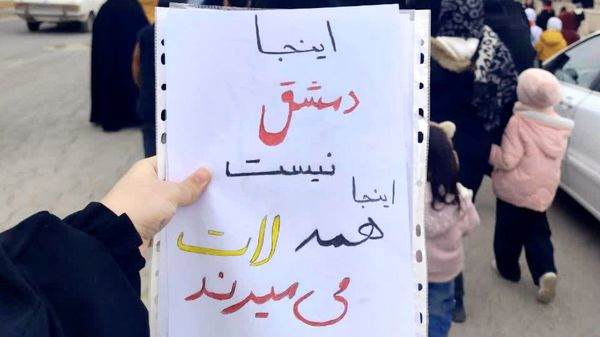 اینجا
دمشق
نیست
اینجا
همه لات
می میرند